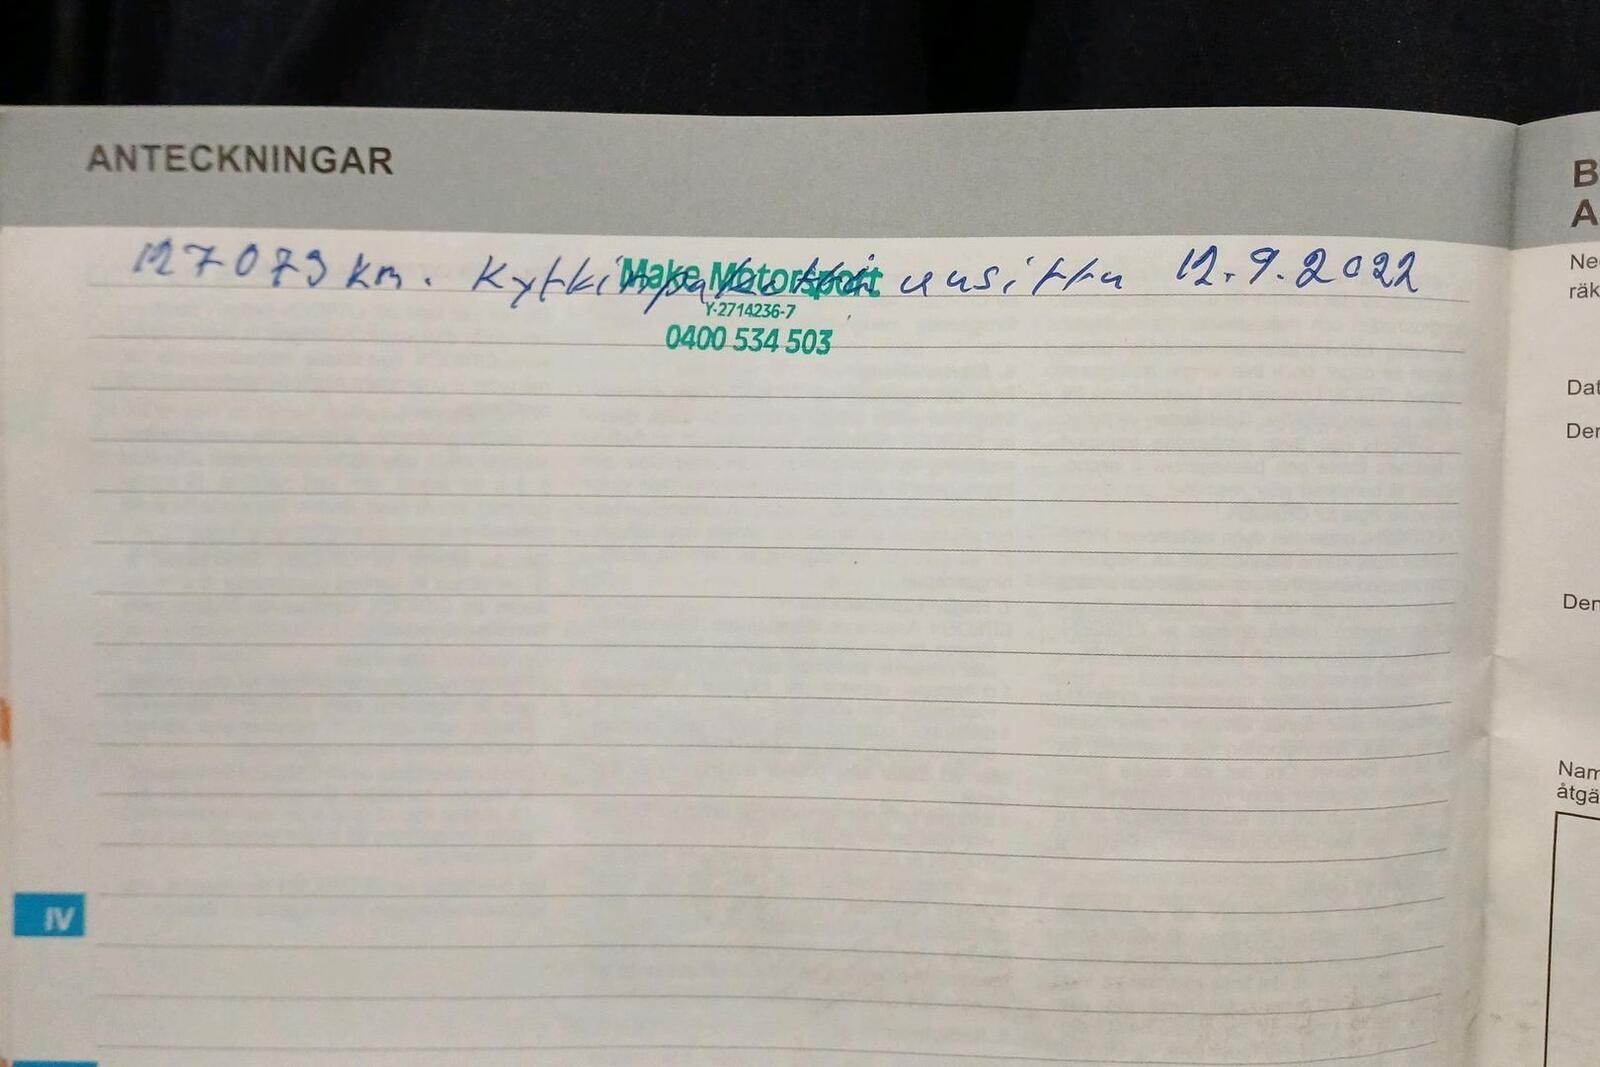 ANTECKNINGAR
127073 km. Kytkinpaketti uusittu 12.9.2022
Make Motorsport
Y-2714236-7
0400 534 503
IV
B
A
räk
Dat
Den
Nam
åtgä